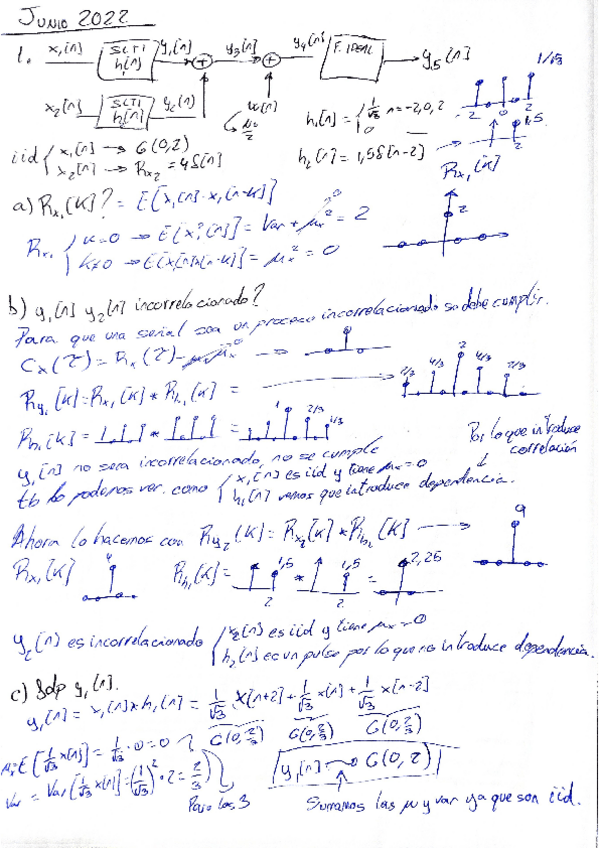 JUNIO 2022
1. x₁[n] SLTI h₁[n] y₁[n] + y₃[n] + y₄[n] F. IDEAL y₅[n]
x₂[n] SLTI h₂[n] y₂[n] w[n]
h₁[n] = { 1/√3 n=-2,0,2
0
1/√3
2 0 2
iid { x₁[n] → G(0,2)
x₂[n] → Rx₂ = 4δ[n]
h₂[n] = 1,5δ[n-2]
1,5
2
Rx₁[K]
a) Rx₁[K]? = E[x₁[n]·x₁[n-K]]
2
Rx₁ { K=0 → E[x₁²[n]] = Var + μx² = 2
K≠0 → E[x[n]x[n-K]] = μx² = 0
b) y₁[n] y₂[n] incorrelacionado?
Para que una señal sea un proceso incorrelacionado se debe cumplir.
Cx(τ) = Rx(τ) - μx² 0 →
Ry₁[K] = Rx₁[K] * Rh₁[K] = → 2/3 4/3 2 4/3 2/3
Rh₁[K] = * = 1 2/3 1/3
Por lo que introduce correlación
y₁[n] no sera incorrelacionado, no se cumple
tb lo podemos ver. como { x₁[n] es iid y tiene μx = 0
h₁[n] vemos que introduce dependencia.
Ahora lo hacemos con Ry₂[K] = Rx₂[K] * Rh₂[K] → 9
Rx₁[K] 4 Rh₁[K] = 1,5 * 1,5 = 2,25
2 2
y₂[n] es incorrelacionado { x₂[n] es iid y tiene μx = 0
h₂[n] es un pulso por lo que no introduce dependencia.
c) fdp y₁[n].
y₁[n] = x₁[n] * h₁[n] = 1/√3 x[n+2] + 1/√3 x[n] + 1/√3 x[n-2]
G(0,2/3) G(0,2/3) G(0,2/3)
μ = E[1/√3 x[n]] = 1/√3 · 0 = 0
Var = Var[1/√3 x[n]] = (1/√3)² · 2 = 2/3
Para los 3
y₁[n] → G(0,2)
Sumamos las μ y var ya que son iid.